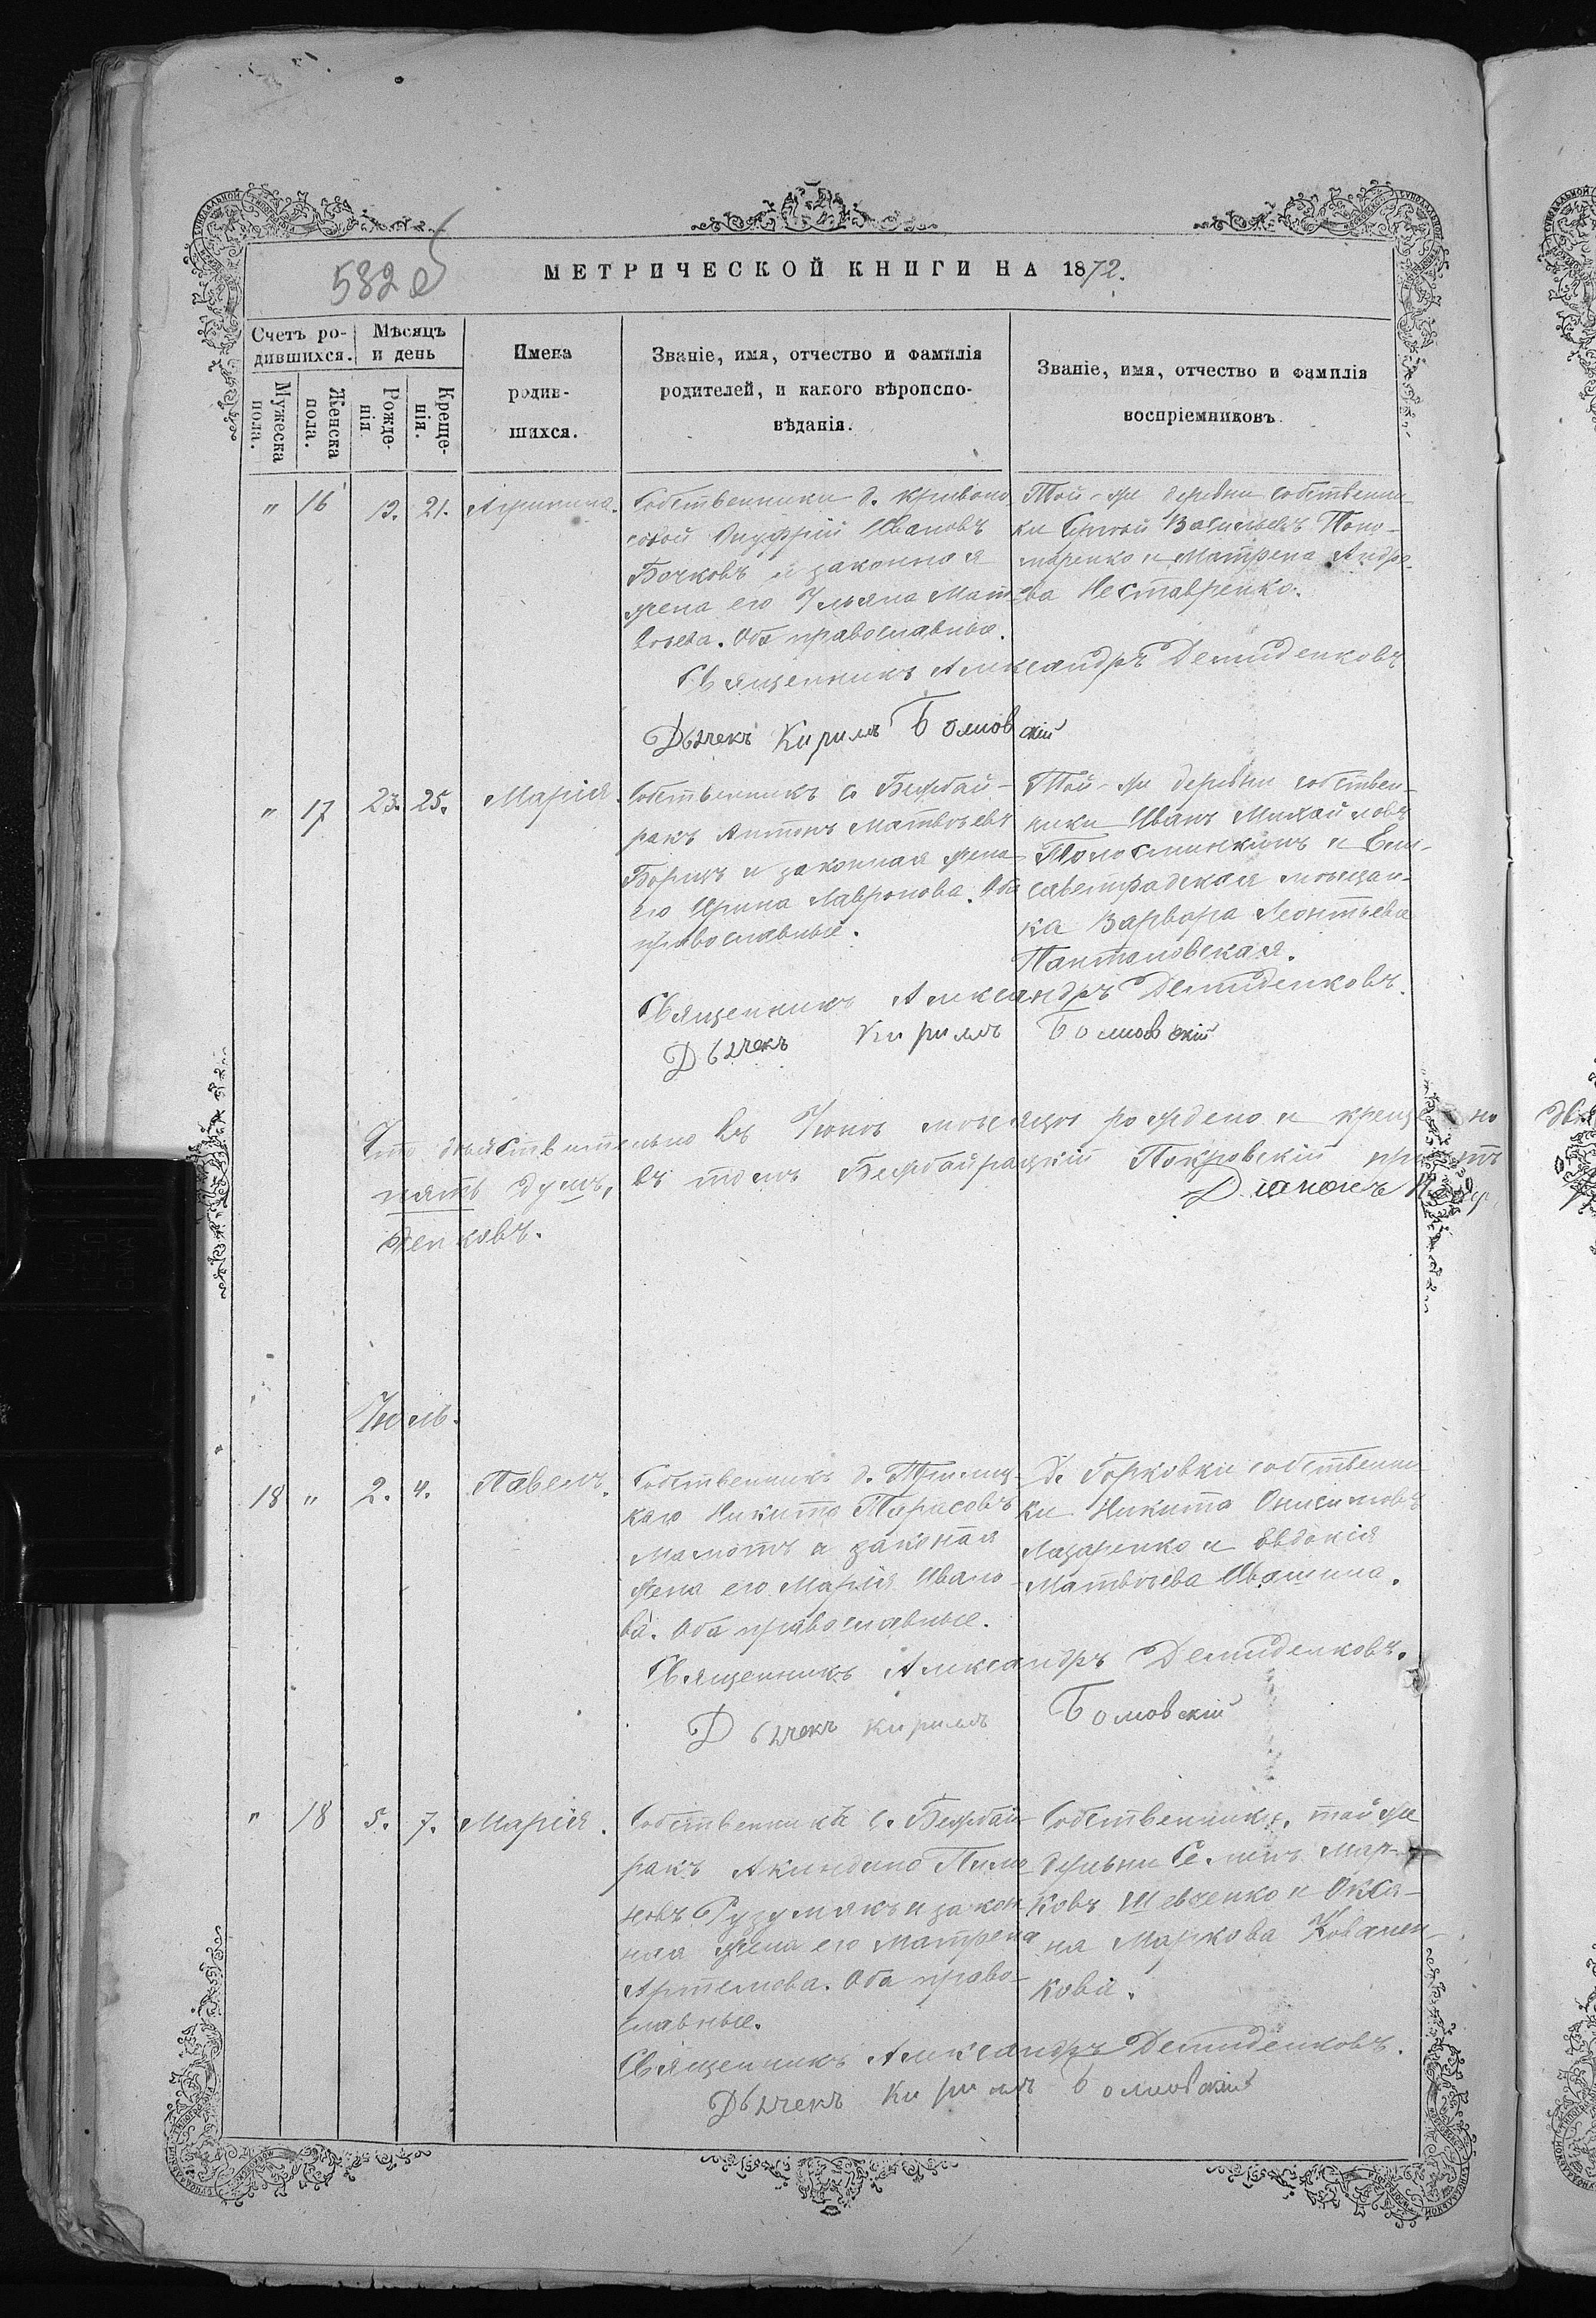 582 об
МЕТРИЧЕСКОЙ КНИГИ НА 1872.
Счетъ ро-
дившихся.
Мѣсяцъ
и день
Мужеска
пола.
Женска
пола.
Рожде-
нія
Креще-
нія.
Имена
родив-
шихся.
Званіе, имя, отчество и фамилія
родителей, и какого вѣроиспо-
вѣданія.
Званіе, имя, отчество и фамилія
воспріемниковъ
" 16 19. 21. Агрипина.
Собственники д. Кривоно
совой Онуфрій Ивановъ
Бочковъ и законная
жена его Ульяна Мат-
вѣева. Оба православные.
Той-же деревни собственни
ки Сергѣй Васильевъ Поно-
маренко и Матрена Андре
ва Неставренко.
Священникъ Александръ Демиденковъ
Дьячекъ Кирилъ Бомовскій
" 17 23. 25. Марія.
Собственникъ с. Бежбай-
ракъ Антонъ Матвѣевъ
Борщъ и законная жена
его Ирина Лавронова. Оба
православные.
Той-же деревни собствен-
ники Иванъ Михайловъ
и Ели-
саветградская мѣщан-
ка Варвара Леонтьева
Пантоловская.
Священникъ Александръ Демиденковъ.
Дьячекъ Кирилъ Бомовскій
Что дѣйствительно въ Іюнѣ мѣсяцѣ рождено и крещено
пять душъ, въ томъ Бежбайрацкій Покровскій причтъ
Діаконъ
денковъ.
Іюль.
18 " 2. 4. Павелъ.
Собственникъ д.
каго Никита Тарасовъ
Мамотъ и законная
жена его Марія Ивано
ва. Оба православные.
Д. Горковки собственни-
ки Никита Онисимовъ
Лазаренко и Евдокія
Матвѣева Ивашина.
Священникъ Александръ Демиденковъ.
Дьячекъ Кирилъ Бомовскій
" 18 5. 7. Марія.
Собственникъ с. Бежбай-
ракъ Акиндинъ Пиме
новъ Гузумякъ и закон
ная жена его Матрена
Артемова. Оба право-
славные.
Собственники той же
деревни Семенъ Мар-
ковъ Шевченко и Окса-
на Маркова Ковален-
кова.
Священникъ Александръ Демиденковъ.
Дьячекъ Кирилъ Бомовскій